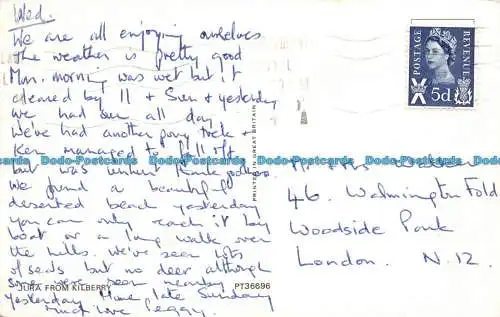 Wed.
We are all enjoying ourselves
The weather is pretty good
Mon. morning was wet but it
cleared by 11 + Sun + yesterday
we had sun all day
We've had another pony trek +
Ken managed to fall off
but was unhurt thank goodness
We found a beautiful
deserted beach yesterday
you can only reach it by
boat or a long walk over
the hills. We've seen lots
of seals but no deer although
some were seen nearby
yesterday Home late Sunday
Much love Peggy.
JURA FROM KILBERRY
PT36696
PRINTED IN GREAT BRITAIN
POSTAGE
REVENUE
5d
46. Walmington Fold
Woodside Park
London. N.12.
Dodo-Postcards Dodo-Postcards Dodo-Postcards Dodo-Postcards Dodo-Postcards